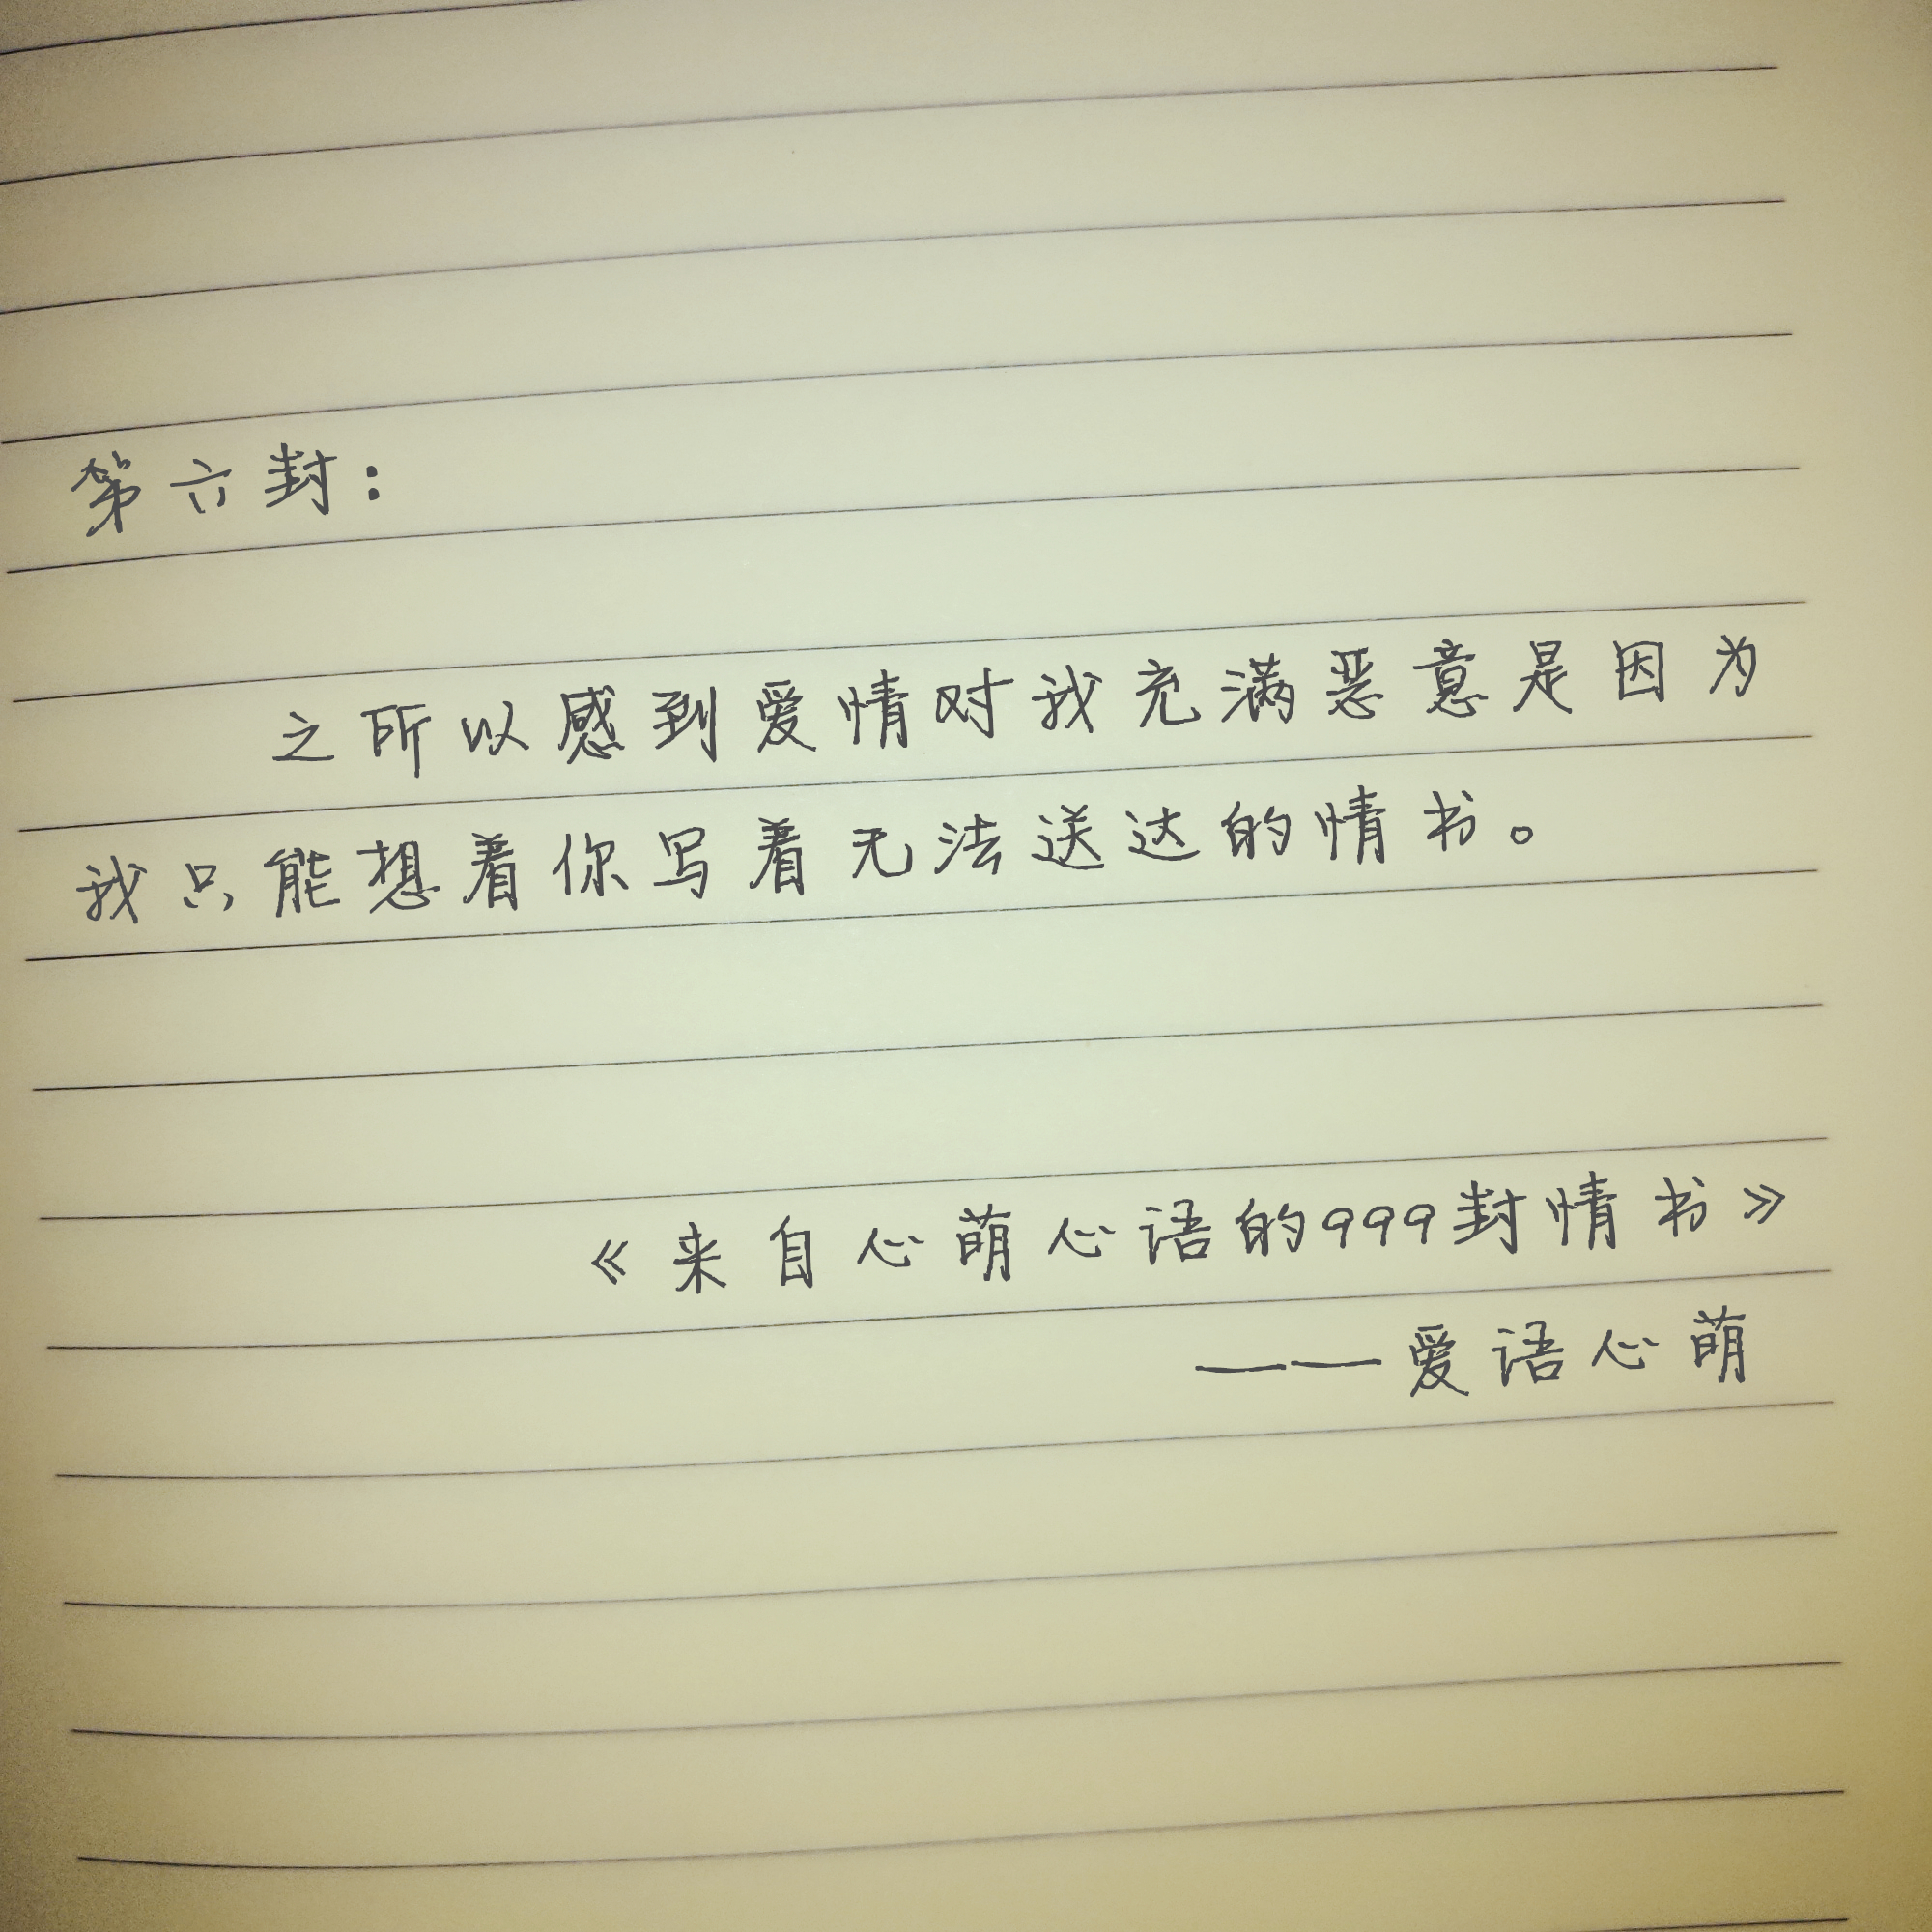 第六封：
之所以感到爱情对我充满恶意是因为
我只能想着你写着无法送达的情书。
《来自心萌心语的999封情书》
——爱语心萌